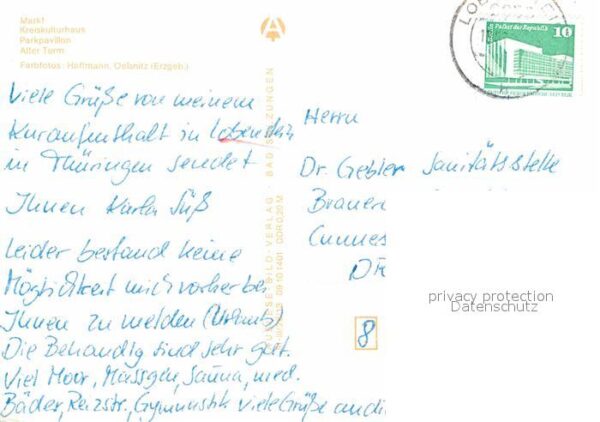 Markt
Kreiskulturhaus
Parkpavillon
Alter Turm
Farbfotos: Hoffmann, Oelsnitz (Erzgeb.)
Viele Grüße von meinem
Kuraufenthalt in Lobenstein
in Thüringen sendet
Ihnen Karla Süß
Leider bestand keine
Möglichkeit mich vorher bei
Ihnen zu melden (Urlaub)
Die Behandlg sind sehr gut.
Viel Moor, Massgen, Sauna, med.
Bäder, Reizstr., Gymnastik viele Grüße an di
BILD-VERLAG · BAD SALZUNGEN
09 10 1401 DDR 0,20 M
Herrn
Dr. Gebler Sanitätsstelle
Brauer
Cunnes
8
LOBENSTEIN
Palast der Republik
10
privacy protection
Datenschutz